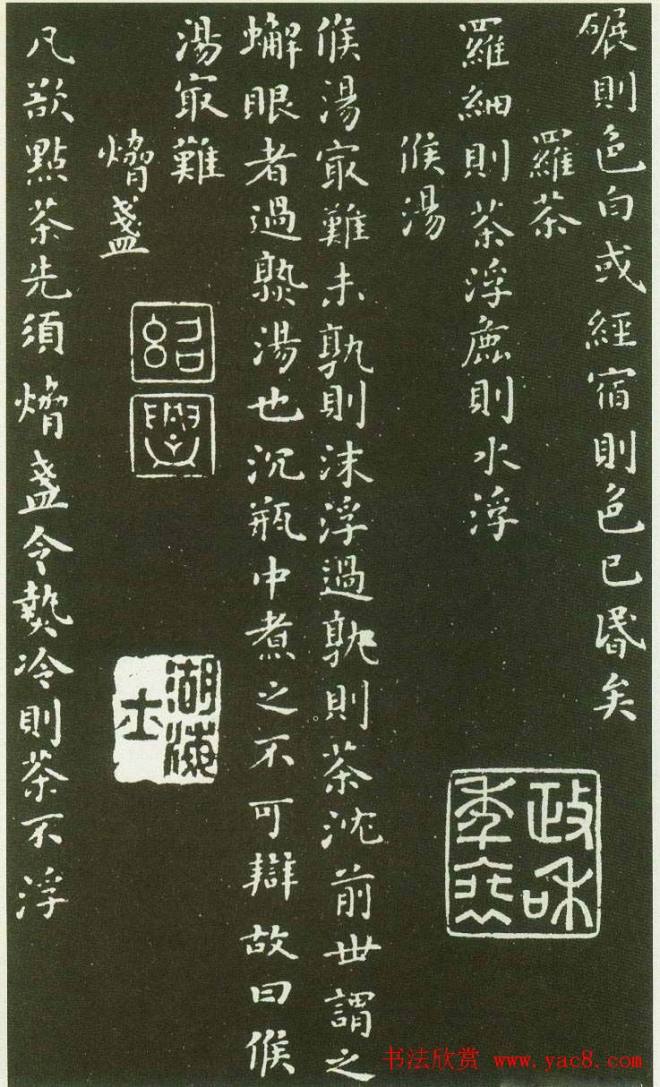 碾則色白或經宿則色已昬矣
羅茶
羅細則茶浮麁則水浮
候湯
候湯㝡難未孰則沫浮過孰則茶沈前世謂之
蠏眼者過熟湯也沉瓶中煮之不可辯故曰候
湯㝡難
熁盞
凡欲點茶先須熁盞令𤍠冷則茶不浮
政和
紹興
湖海
士
书法欣赏 www.yac8.com